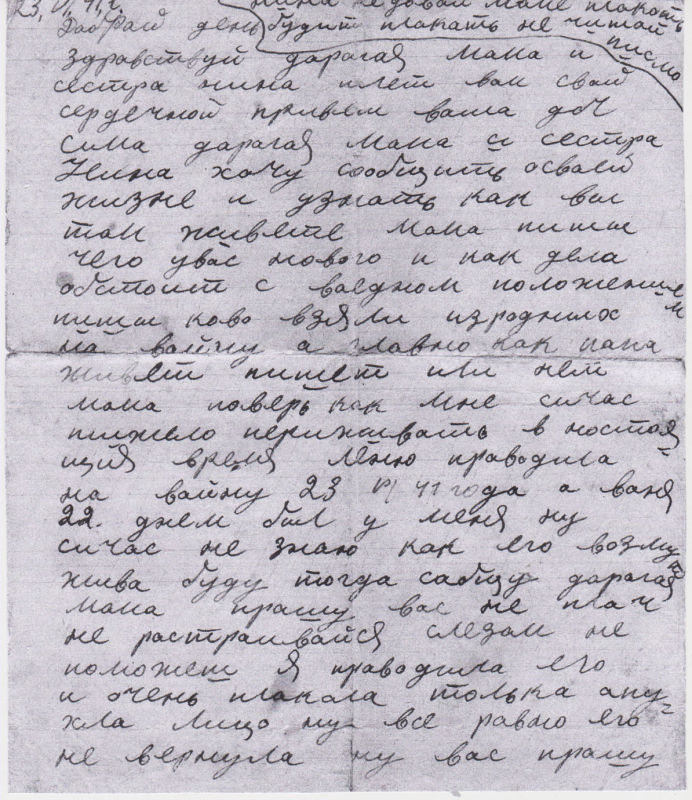 23, VI, 41 г. Нина недовай маме плакать
Добрай день будит плакать не читай писмо
здравствуй дарагая мама и
сестра нина шлет вам свай
сердечной привет ваша доч
сима дарагая мама и сестра
Нина хочу сообщить освоей
жизне и узнать как вы
там живете мама пиши
чего увас нового и как дела
обстоит с ваедном положением
пиши ково взяли изродных
на вайну а главно как папа
живет пишет или нет
мама поверь как мне сичас
тижело перижывать в ностоя
щия время Лёню праводила
на вайну 23 VI 41 года а ваня
22. днем был у меня ну
сичас не знаю как его возмут
жива буду тогда сабщу дарагая
мама прашу вас не плач
не растраивайся слезам не
поможеш я праводила его
и очень плакала толька апу
хла лицо ну все равно его
не вернула ну вас прашу